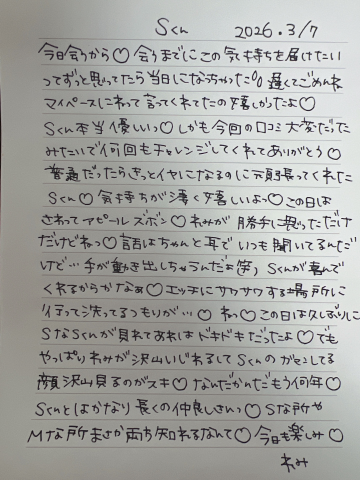 Sくん　2026.3/7
今日会うから♡会うまでにこの気持ちを届けたい
ってずっと思ってたら当日になっちゃった💦遅くてごめんね
マイペースにねって言ってくれてたの嬉しかったよ♡
Sくん本当優しいっ♡しかも今回の口コミ大変だった
みたいで何回もチャレンジしてくれてありがとう♡
普通だったらきっとイヤになるのに頑張ってくれた
Sくん♡気持ちが凄く嬉しいよっ♡この日は
さわってアピールズボン♡れみが勝手に思っただけ
だけどねっ♡話はちゃんと耳でいつも聞いてるんだ
けど…手が動き出しちゃうんだよ(笑)Sくんが喜んで
くれるからかなぁ♡エッチにサワサワする場所に
行って決ってるつもりが…♡ねっ♡この日は久しぶりに
SなSくんが見れてあれはドキドキだったよ♡でも
やっぱりれみが沢山いじわるしてSくんのガマンしてる
顔沢山見るのがスキ♡なんだかんだもう何年♡
Sくんとはかなり長くの仲良しさんっ♡Sな所や
Mな所まさか両方知れるなんて♡今日も楽しみ♡
れみ